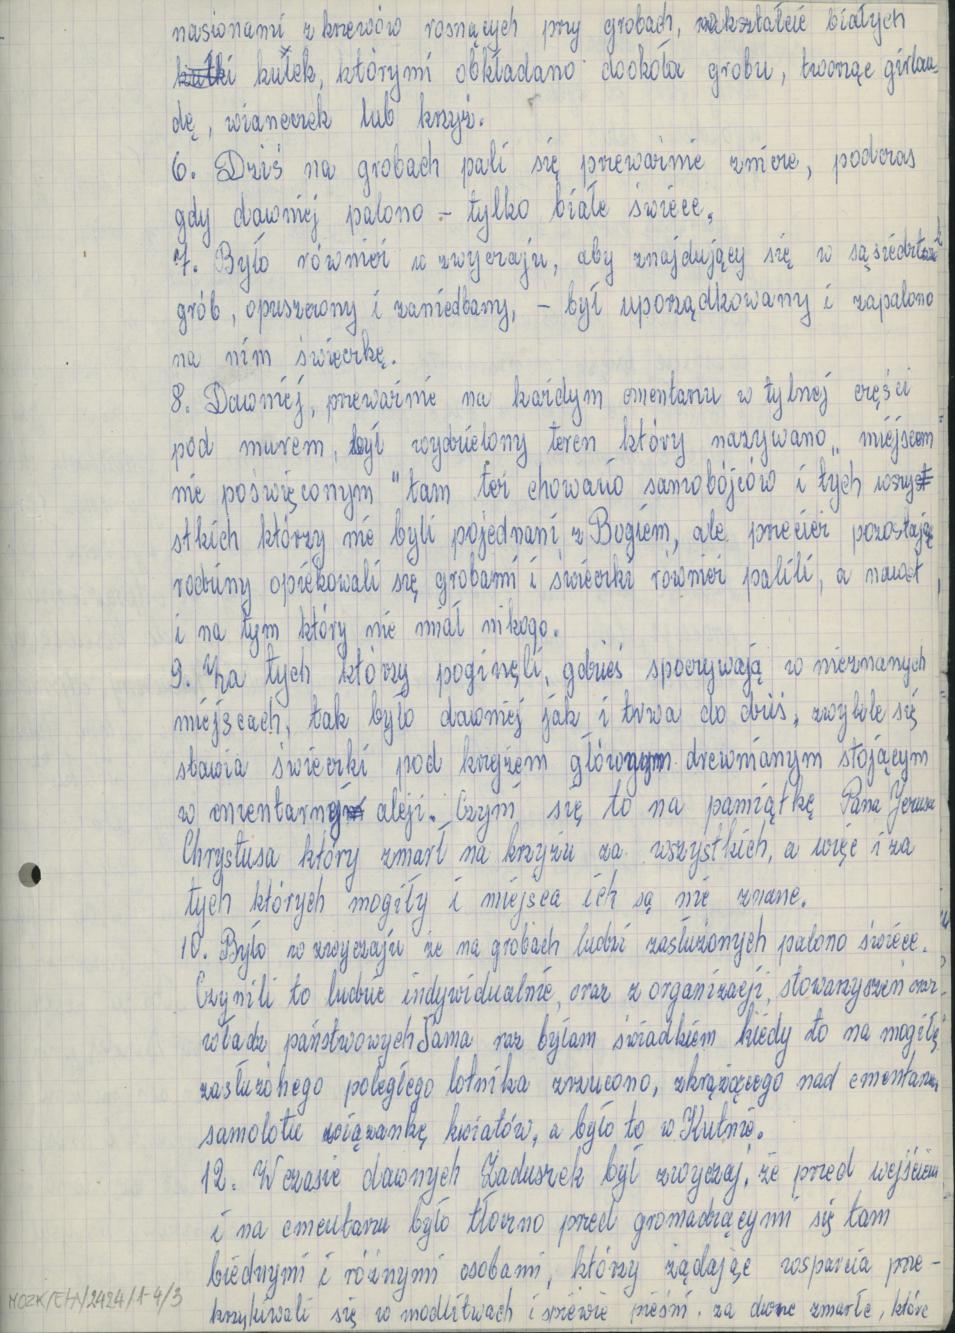 nasionami z krzewów rosnących przy grobach, na kształcie białych
kulki kulek, którymi obkładano dookoła grobu, tworząc girlan-
dę, wianeczek lub krzyż.
6. Dziś na grobach pali się przeważnie znicze, podczas
gdy dawniej palono - tylko białe świece.
7. Było również w zwyczaju, aby znajdujący się w sąsiedztwie
grób, opuszczony i zaniedbany, - był uporządkowany i zapalono
na nim świeczkę.
8. Dawniej, przeważnie na każdym cmentarzu w tylnej części
pod murem, był wydzielony teren który nazywano „miejscem
nie poświęconym" tam też chowano samobójców i tych wszy-
stkich którzy nie byli pojednani z Bogiem, ale przecież pozostające
rodziny opiekowali się grobami i świeczki również palili, a nawet
i na tym który nie miał nikogo.
9. Za tych którzy poginęli, gdzieś spoczywają w nieznanych
miejscach, tak było dawniej jak i trwa do dziś, zwykle się
stawia świeczki pod krzyżem głównym drewnianym stojącym
w cmentarnej aleji. Czyni się to na pamiątkę Pana Jezusa
Chrystusa który zmarł na krzyżu za wszystkich, a więc i za
tych których mogiły i miejsca ich są nie znane.
10. Było w zwyczaju że na grobach ludzi zasłużonych palono świece.
Czynili to ludzie indywidualnie, oraz z organizacji, stowarzyszeń oraz
władz państwowych Sama raz byłam świadkiem kiedy to na mogiłę
zasłużonego poległego lotnika zrzucono, z krążącego nad cmentarzem
samolotu wiązankę kwiatów, a było to w Kutnie.
12. W czasie dawnych Zaduszek był zwyczaj, że przed wejściem
i na cmentarzu było tłoczno przed gromadzącymi się tam
biednymi i różnymi osobami, którzy żądając wsparcia prze-
krzykiwali się w modlitwach i śpiewie pieśni za dusze zmarłe, które
MOZK/EtA/2424/1-4/3